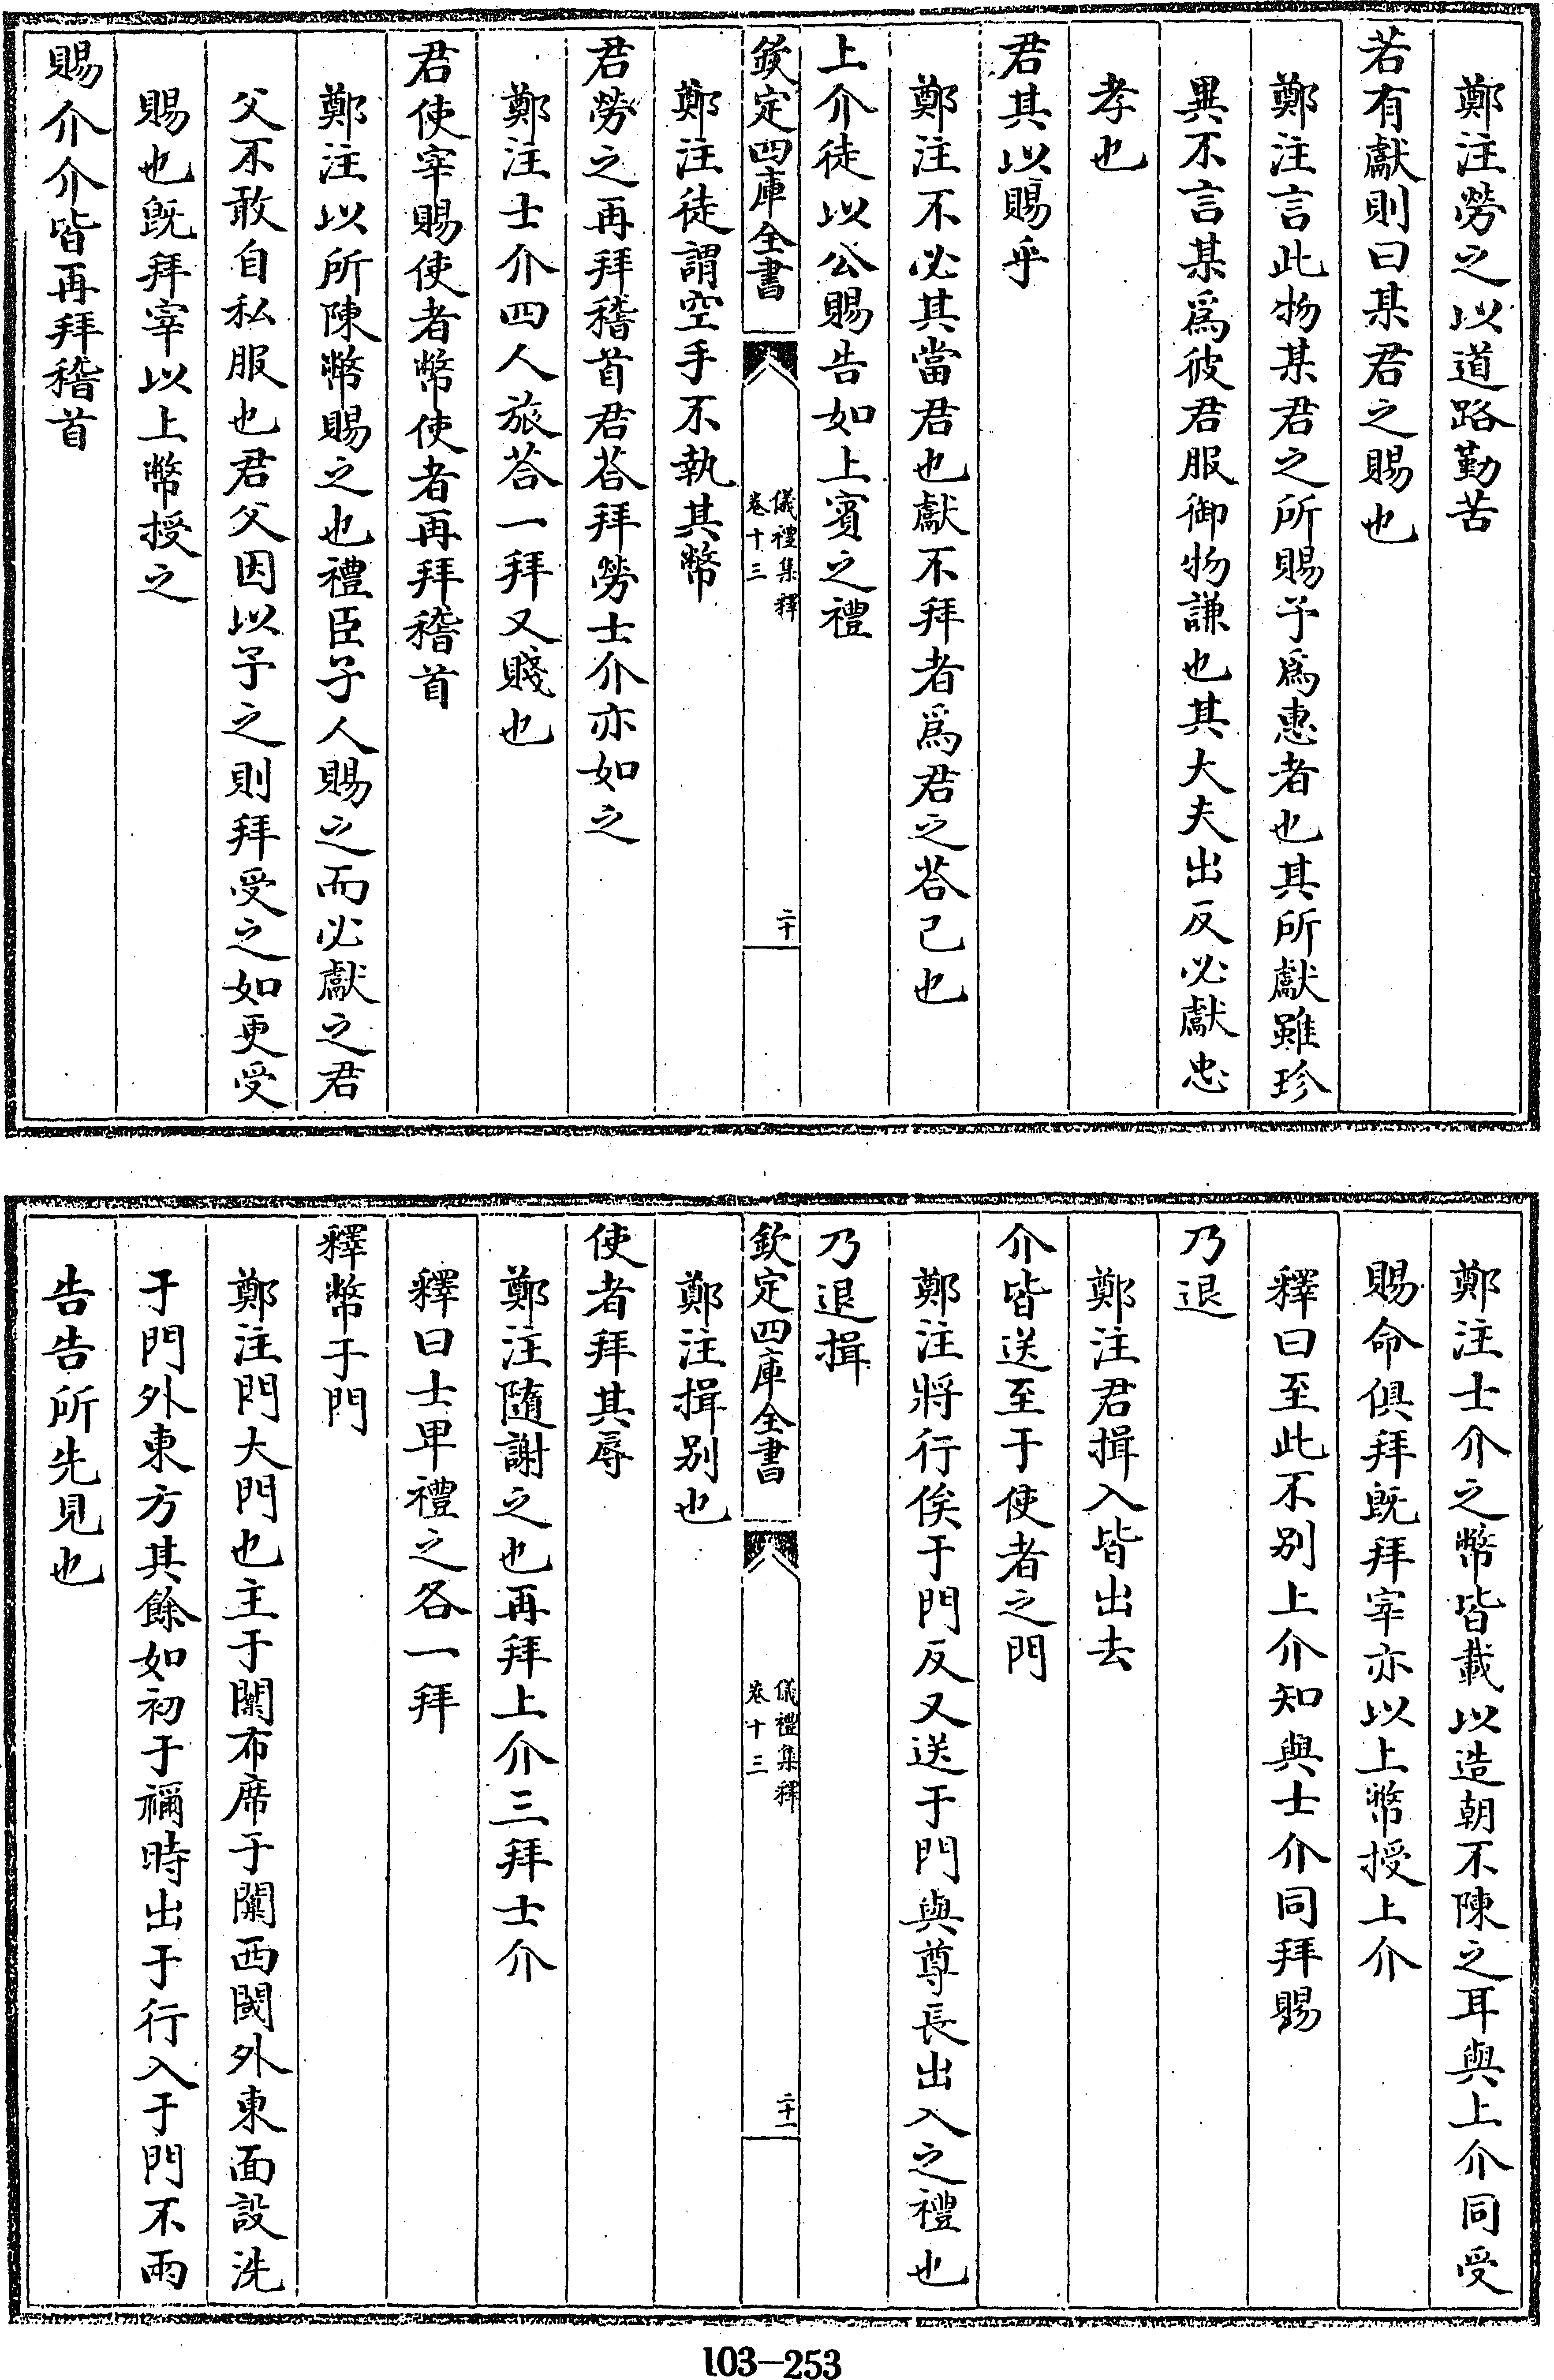 鄭注勞之以道路勤苦
若有獻則曰某君之賜也
鄭注言此物某君之所賜予爲惠者也其所獻雖珍
異不言某爲彼君服御物謙也其大夫出反必獻忠
孝也
君其以賜乎
鄭注不必其當君也獻不拜者爲君之荅己也
上介徒以公賜告如上賓之禮
欽定四庫全書
儀禮集釋
卷十三
二十
鄭注徒謂空手不執其幣
君勞之再拜稽首君荅拜勞士介亦如之
鄭注士介四人旅荅一拜又賤也
君使宰賜使者幣使者再拜稽首
鄭注以所陳幣賜之也禮臣子人賜之而必獻之君
父不敢自私服也君父因以予之則拜受之如更受
賜也旣拜宰以上幣授之
賜介介皆再拜稽首
鄭注士介之幣皆載以造朝不陳之耳與上介同受
賜命俱拜旣拜宰亦以上幣授上介
釋曰至此不别上介知與士介同拜賜
乃退
鄭注君揖入皆出去
介皆送至于使者之門
鄭注將行俟于門反又送于門與尊長出入之禮也
乃退揖
欽定四庫全書
儀禮集釋
卷十三
二十一
鄭注揖别也
使者拜其辱
鄭注隨謝之也再拜上介三拜士介
釋曰士卑禮之各一拜
釋幣于門
鄭注門大門也主于闑布席于闑西閾外東面設洗
于門外東方其餘如初于禰時出于行入于門不兩
告告所先見也
103-253